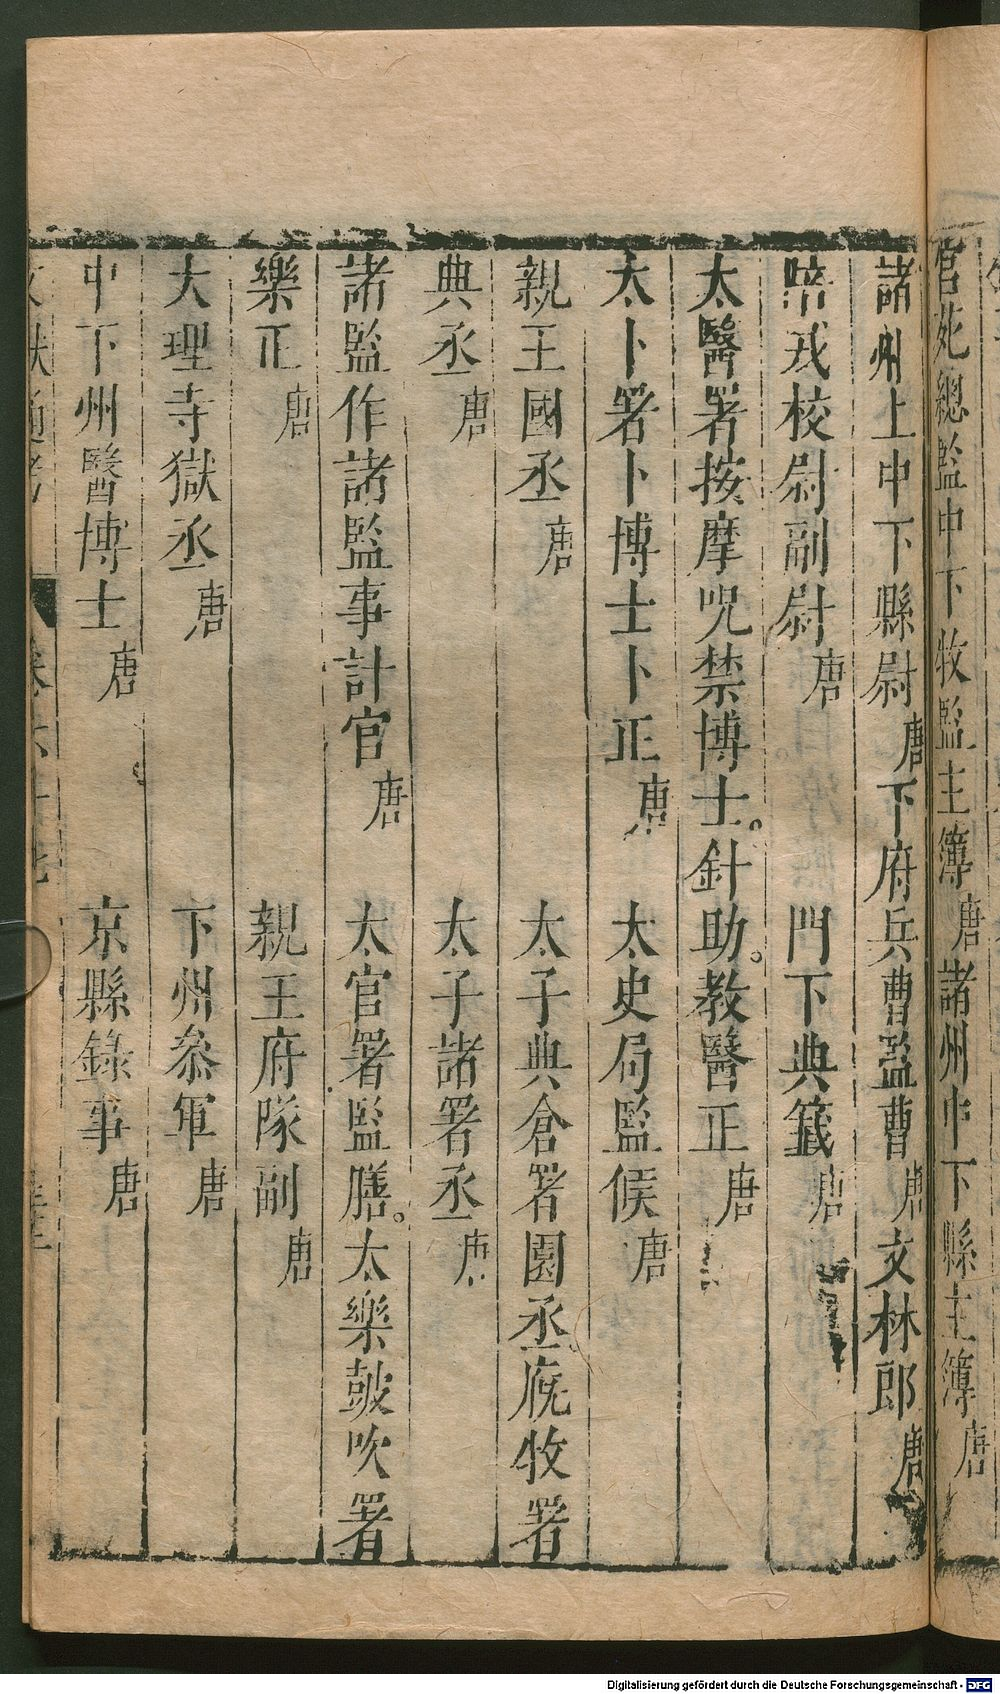 官苑總監中下牧監主簿唐諸州中下縣主簿唐
諸州上中下縣尉唐下府兵曹監曹唐文林郎唐
陪戎校尉副尉唐門下典籤唐
太醫署按摩呪禁博士。針助。教醫正唐
太卜署卜博士卜正唐太史局監候唐
親王國丞唐太子典倉署園丞廐牧署
典丞唐太子諸署丞唐
諸監作諸監事計官唐太官署監膳。太樂皷吹署
樂正唐親王府隊副唐
大理寺獄丞唐下州叅軍唐
中下州醫博士唐京縣錄事唐
文獻通考 卷六十七
Digitalisierung gefördert durch die Deutsche Forschungsgemeinschaft - DFG